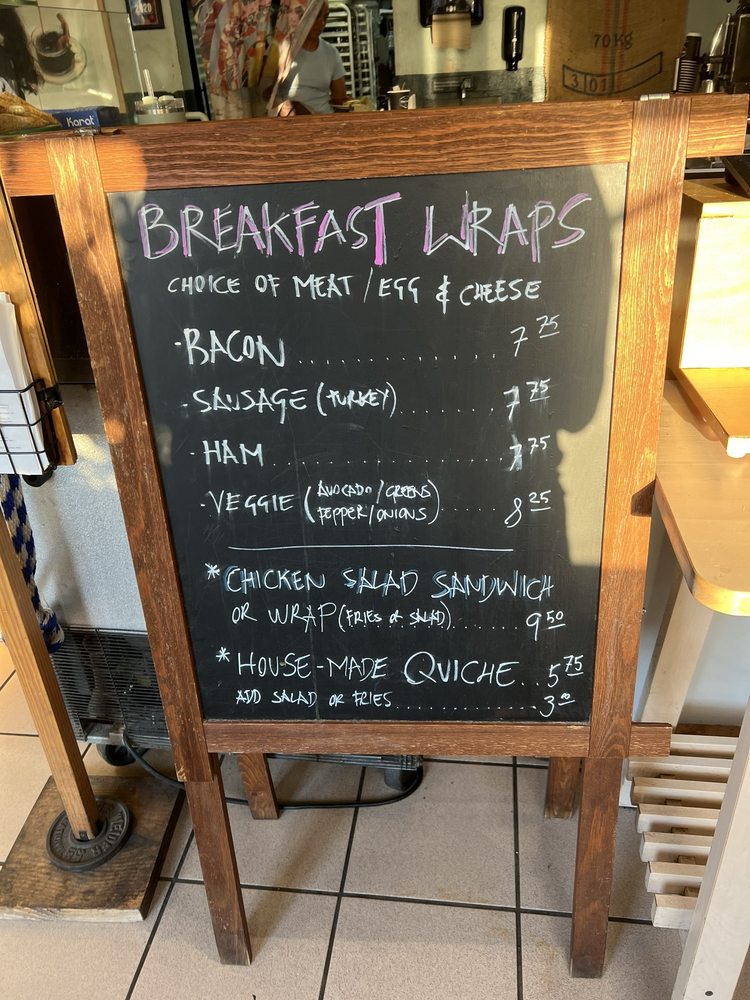 2020
Karat
70KG
3101
BREAKFAST WRAPS
CHOICE OF MEAT / EGG & CHEESE
- BACON ............. 7 75
- SAUSAGE (TURKEY) ....... 7 75
- HAM .................. 7 75
- VEGGIE (AVOCADO / GREENS
PEPPER / ONIONS) ...... 8 25
* CHICKEN SALAD SANDWICH
OR WRAP (FRIES or SALAD) ........ 9 50
* HOUSE-MADE QUICHE .. 5 75
ADD SALAD OR FRIES ............... 3 00